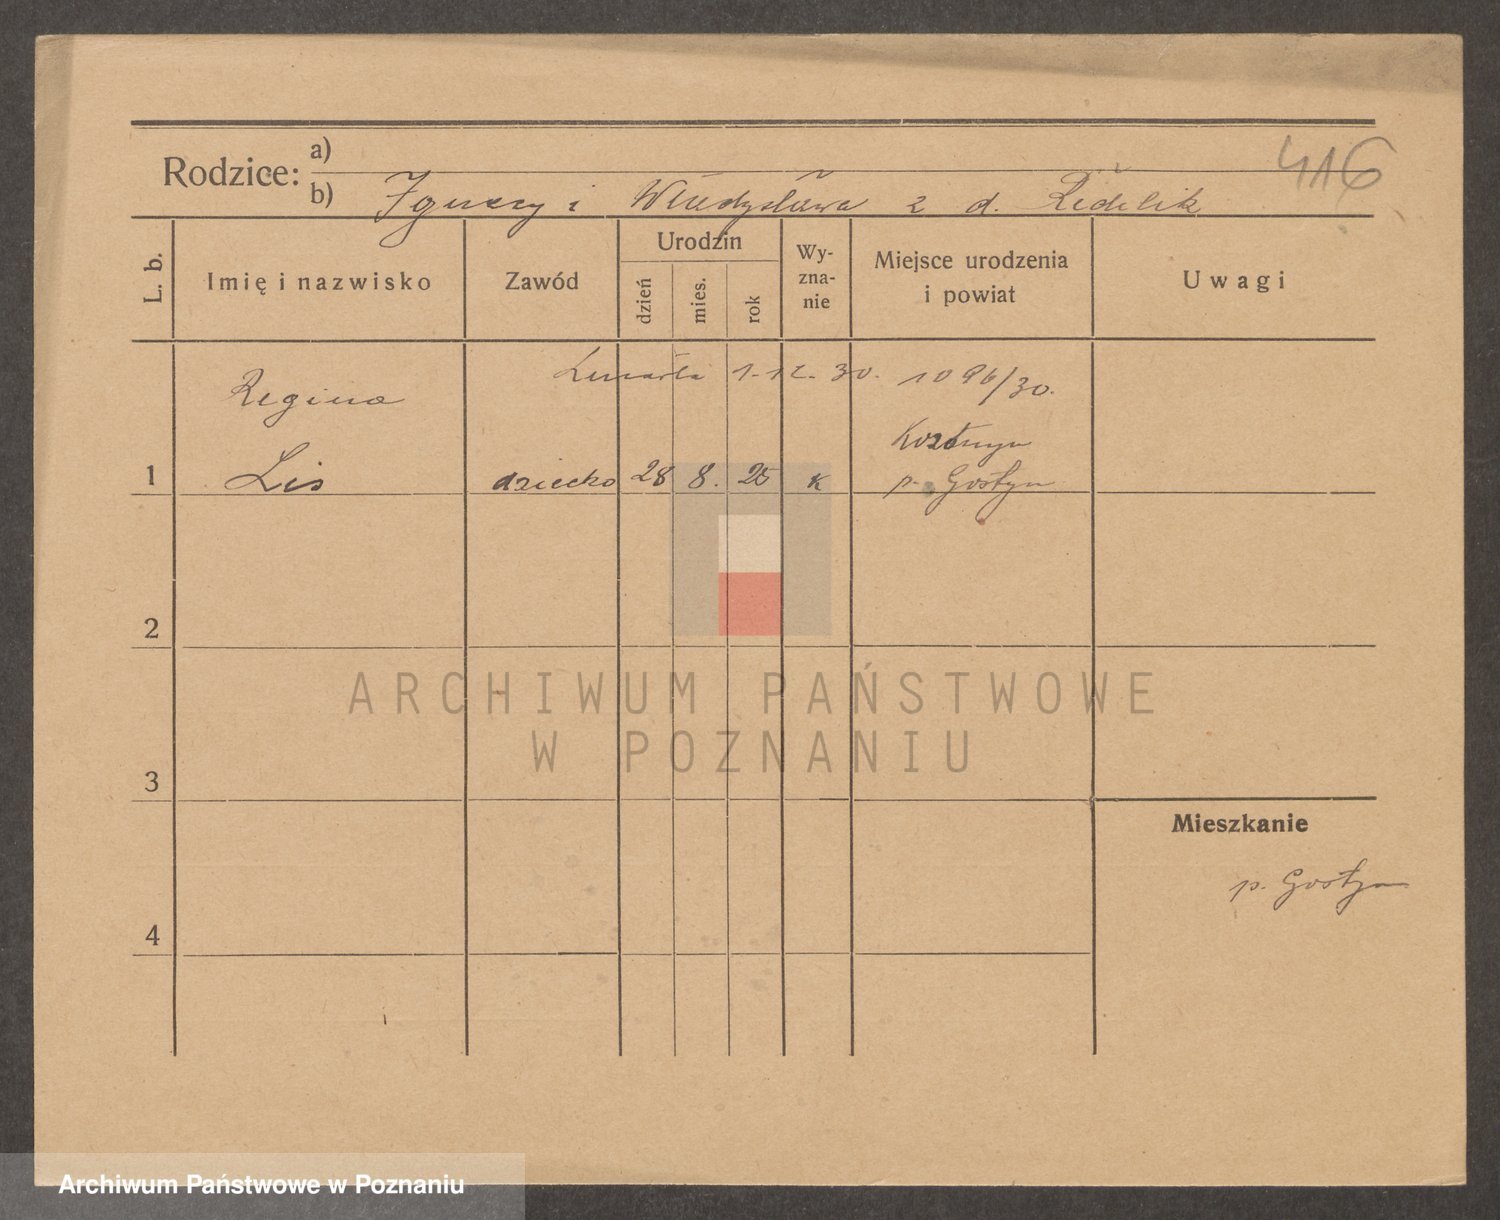 Rodzice: a)
b) Ignacy i Władysława z d.
416
L. b.
Imię i nazwisko
Zawód
Urodzin
dzień
mies.
rok
Wy-
zna-
nie
Miejsce urodzenia
i powiat
Uwagi
Zmarła 1.12.30. 1096/30.
Regina
Lis
1
dziecko
28
8.
25
k
p. Gostyń
2
3
4
Mieszkanie
p. Gostyń
ARCHIWUM PAŃSTWOWE
W POZNANIU
Archiwum Państwowe w Poznaniu